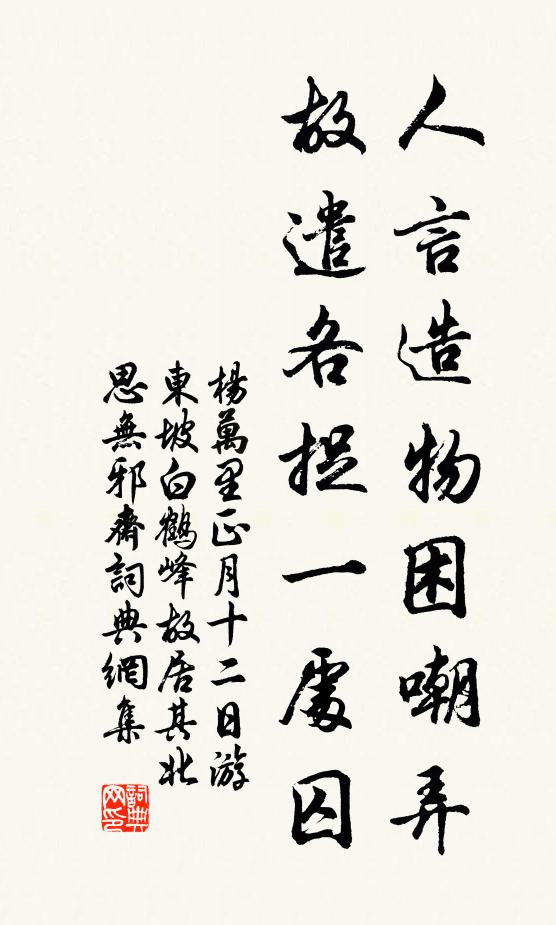 人言造物困嘲弄
故遣各捉一處囚
楊萬里正月十二日游
東坡白鶴峰故居其北
思無邪齋詞典網集
詞典网印